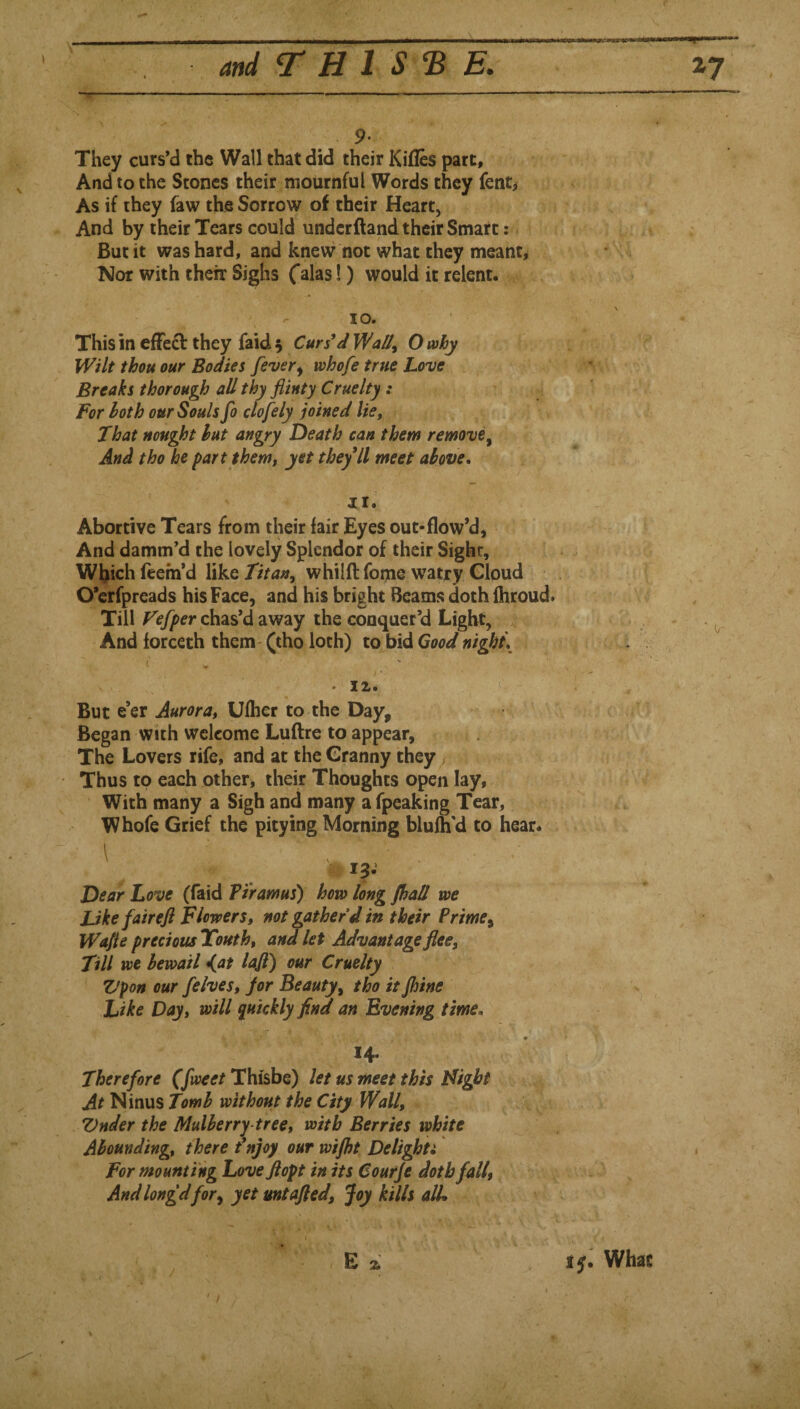 and THISBE. 27
9.
They curs'd the Wall that did their Kiſſes part,
And to the Stones their mournful Words they ſent,
As if they ſaw the Sorrow of their Heart,
And by their Tears could underſtand their Smart:
But it was hard, and knew not what they meant,
Nor with their Sighs (alas!) would it relent.
10.
This in effect they ſaid; Curs'd Wall, O why
Wilt thou our Bodies ſever, whoſe true Love
Breaks thorough all thy flinty Cruelty:
For both our Souls ſo cloſely joined lie,
That nought but angry Death can them remove,
And tho he part them, yet they'll meet above.
11.
Abortive Tears from their fair Eyes out-flow'd,
And damm'd the lovely Splendor of their Sight,
Which ſeem'd like Titan, whilſt ſome watry Cloud
O'erſpreads his Face, and his bright Beams doth ſhroud.
Till Veſper chas'd away the conquer'd Light,
And forceth them (tho loth) to bid Good night.
12.
But e'er Aurora, Uſher to the Day,
Began with welcome Luſtre to appear,
The Lovers riſe, and at the Cranny they
Thus to each other, their Thoughts open lay,
With many a Sigh and many a ſpeaking Tear,
Whoſe Grief the pitying Morning bluſh'd to hear.
13.
Dear Love (ſaid Piramus) how long ſhall we
Like faireſt Flowers, not gather'd in their Prime,
Waſte precious Youth, and let Advantage flee,
Till we bewail (at laſt) our Cruelty
Upon our ſelves, for Beauty, tho it ſhine
Like Day, will quickly find an Evening time.
14.
Therefore (ſweet Thisbe) let us meet this Night
At Ninus Tomb without the City Wall,
Under the Mulberry-tree, with Berries white
Abounding, there t'njoy our wiſht Delight;
For mounting Love ſtopt in its Courſe doth fall,
And long'd for, yet untaſted, Joy kills all.
E 2 15. What